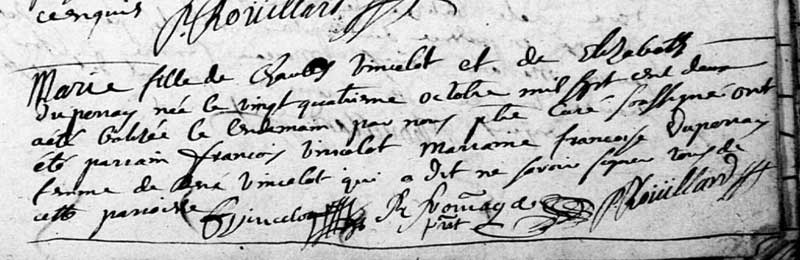 ce enquis P Roüillard
Marie fille de Charles Vincelot et de Elizabeth
Duperray née le vingt quatriesme octobre mil sept cent deux
a été batisée le lendemain par nous ptre Curé soussigné ont
été parrain françois Vincelot Marraine françoise Duperray
femme de René Vincelot qui a dit ne savoir signer tous de
cette paroisse F Vincelot P Roüillard
prêt